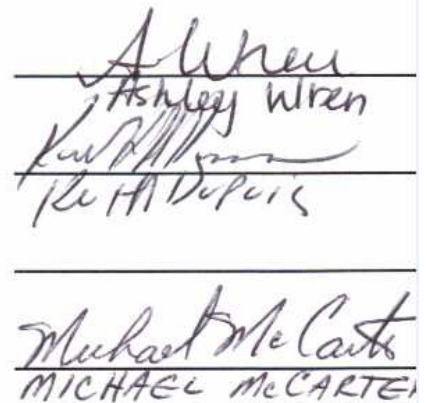 A Wren
Ashley Wren
Keith Dupuis
Michael McCarter
MICHAEL McCARTER